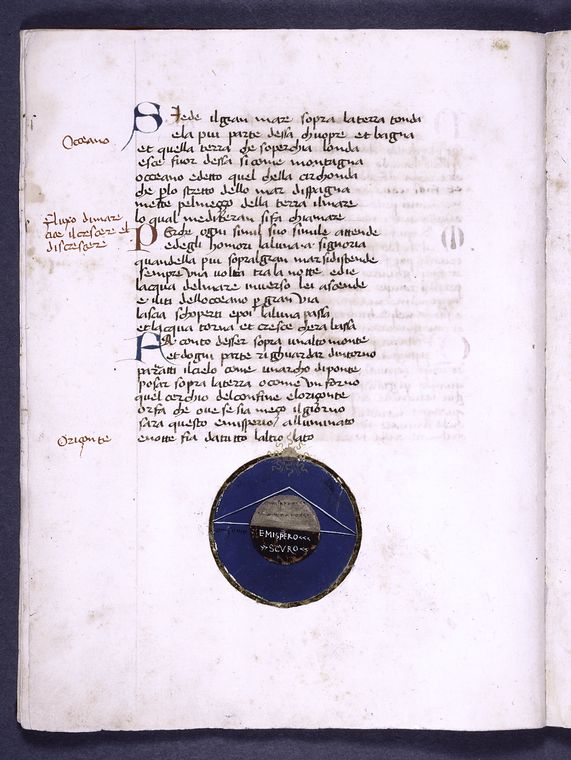 Siede il gran mare sopra la terra tonda
e la piu parte dessa chuopre et bagna
Occeano
et quella terra che soperchia londa
esce fuor dessa si come montagna
occeano e detto quel chella circhonda
che p lo stretto dello mar dispagna
mette pel meçço della terra il mare
fluxo di mare
cioe il crescere et
discrescere
lo qual mediteran si fa chiamare
Perche ogni simil suo simile attende
ed egli homori la luna a signoria
quandella piu sopral gran mar si distende
sempre una volta tra la notte el die
lacqua del mare inverso lei ascende
e liti dell occeano p gran via
lascia schoperti e poi la luna passa
et lacqua torna et cresce chera bassa
Fa conto desser sopra unalto monte
et dogni parte righuardar dintorno
paratti il cielo come unarcho di ponte
posar sopra la terra o come un forno
quel cerchio del confine e loriçonte
or fa che ove se sia meço il giorno
sara questo emisperio alluminato
Oriçonte
e notte fia da tutto laltro lato
EMISPERO
SCVRO